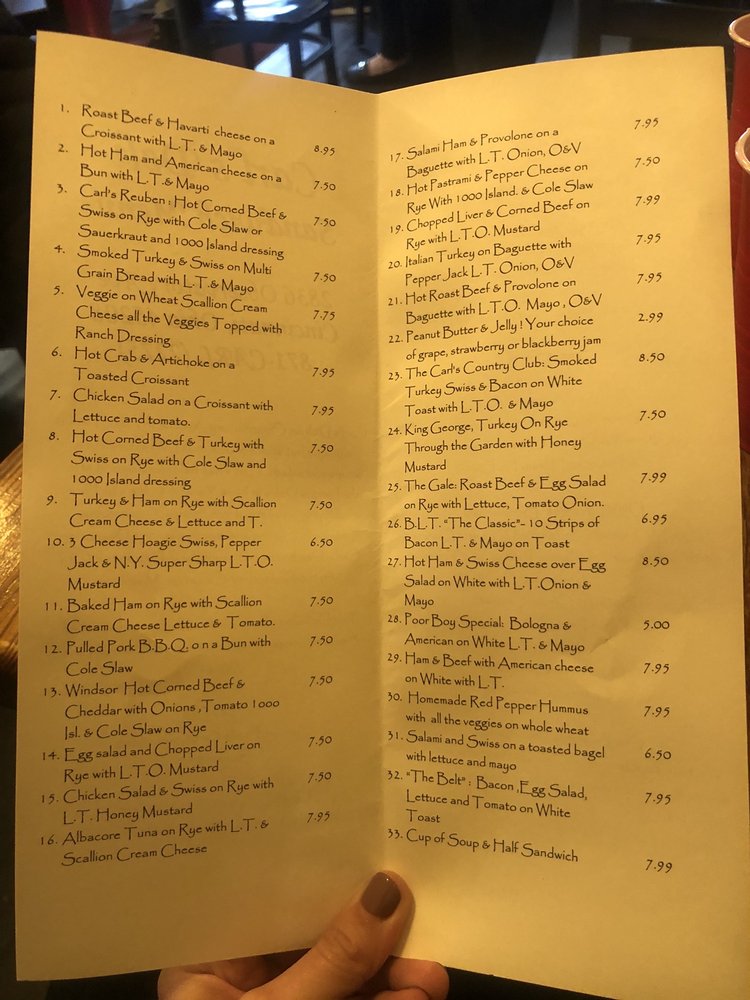 1. Roast Beef & Havarti cheese on a
Croissant with L.T. & Mayo 8.95
2. Hot Ham and American cheese on a
Bun with L.T.& Mayo 7.50
3. Carl's Reuben : Hot Corned Beef &
Swiss on Rye with Cole Slaw or 7.50
Sauerkraut and 1000 Island dressing
4. Smoked Turkey & Swiss on Multi
Grain Bread with L.T.& Mayo 7.50
5. Veggie on Wheat Scallion Cream
Cheese all the Veggies Topped with 7.75
Ranch Dressing
6. Hot Crab & Artichoke on a
Toasted Croissant 7.95
7. Chicken Salad on a Croissant with
Lettuce and tomato. 7.95
8. Hot Corned Beef & Turkey with
Swiss on Rye with Cole Slaw and 7.50
1000 Island dressing
9. Turkey & Ham on Rye with Scallion
Cream Cheese & Lettuce and T. 7.50
10. 3 Cheese Hoagie Swiss, Pepper 6.50
Jack & N.Y. Super Sharp L.T.O.
Mustard
11. Baked Ham on Rye with Scallion 7.50
Cream Cheese Lettuce & Tomato.
12. Pulled Pork B.B.Q. on a Bun with 7.50
Cole Slaw
13. Windsor Hot Corned Beef & 7.50
Cheddar with Onions ,Tomato 1000
Isl. & Cole Slaw on Rye
14. Egg salad and Chopped Liver on 7.50
Rye with L.T.O. Mustard
15. Chicken Salad & Swiss on Rye with 7.50
L.T. Honey Mustard
16. Albacore Tuna on Rye with L.T. & 7.95
Scallion Cream Cheese
17. Salami Ham & Provolone on a 7.95
Baguette with L.T. Onion, O&V
18. Hot Pastrami & Pepper Cheese on 7.50
Rye With 1000 Island. & Cole Slaw
19. Chopped Liver & Corned Beef on 7.99
Rye with L.T.O. Mustard
20. Italian Turkey on Baguette with 7.95
Pepper Jack L.T. Onion, O&V
21. Hot Roast Beef & Provolone on 7.95
Baguette with L.T.O. Mayo , O&V
22. Peanut Butter & Jelly ! Your choice 2.99
of grape, strawberry or blackberry jam
23. The Carl's Country Club: Smoked 8.50
Turkey Swiss & Bacon on White
Toast with L.T.O. & Mayo
24. King George, Turkey On Rye 7.50
Through the Garden with Honey
Mustard
25. The Gale: Roast Beef & Egg Salad 7.99
on Rye with Lettuce, Tomato Onion.
26. B.L.T. "The Classic"- 10 Strips of 6.95
Bacon L.T. & Mayo on Toast
27. Hot Ham & Swiss Cheese over Egg 8.50
Salad on White with L.T.Onion &
Mayo
28. Poor Boy Special: Bologna & 5.00
American on White L.T. & Mayo
29. Ham & Beef with American cheese 7.95
on White with L.T.
30. Homemade Red Pepper Hummus 7.95
with all the veggies on whole wheat
31. Salami and Swiss on a toasted bagel 6.50
with lettuce and mayo
32. "The Belt" : Bacon ,Egg Salad, 7.95
Lettuce and Tomato on White
Toast
33. Cup of Soup & Half Sandwich 7.99